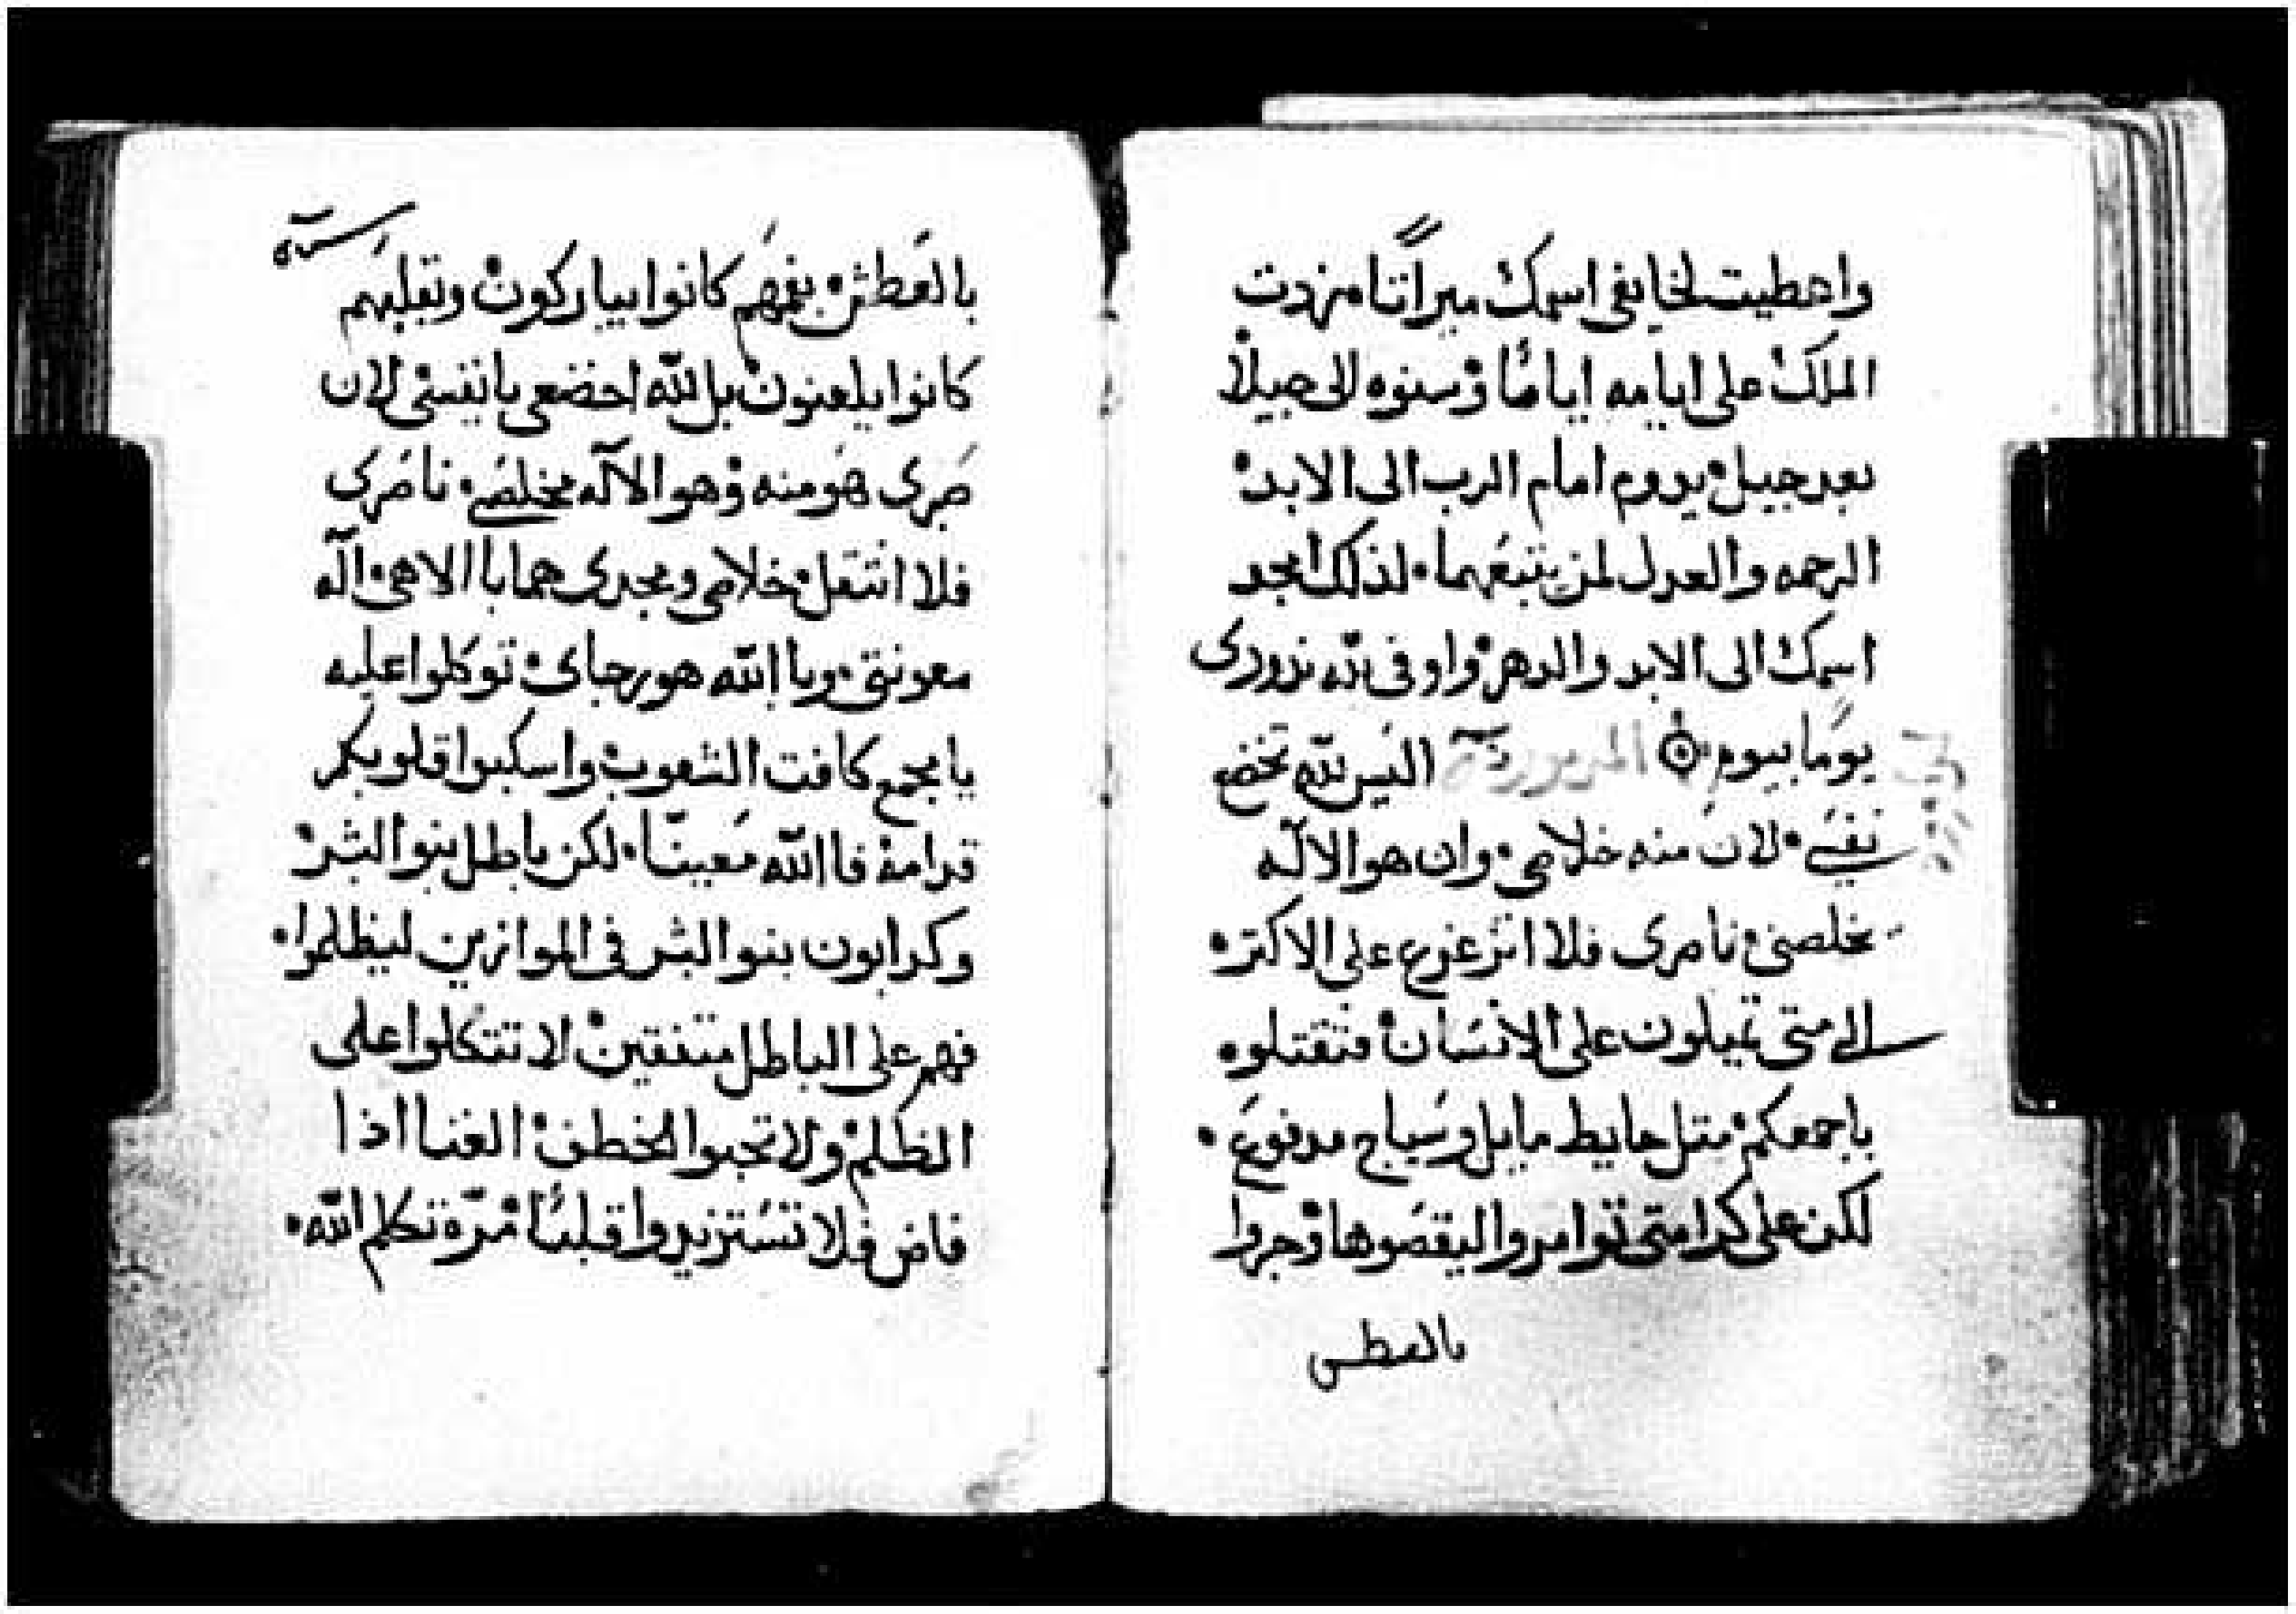 واعطيت لخايفى اسمك ميراثا مزدت
الملك على ايامه اياما وسنوه الى جيلا
بعد جيل يدوم امام الرب الى الابد
الرحمه والعدل لمن يتبعهما لذلك امجد
اسمك الى الابد والدهر واوفى لله نذورى
يوما بيوم المزمور اليس لله تخضع
نفسي لان منه خلاصى وان هو الاله
مخلصى ناصرى فلا اتزعزع على الاكتر
الى متى تميلون على الانسان فتقتلوه
باجمعكم متل حايط مايل وسياج مدفوع
لكن على كرامتى توامروا ليقصوها وجروا
بالعطس
بالعطش بفمهم كانوا يباركون وبقلبهم
كانوا يلعنون بل لله اخضعى يا نفسى لان
صبرى هو منه وهو الاله مخلصى ناصرى
فلا انتقل خلاصى ومجدى هما با الاهى اله
معونتى وبا الله هو رجاى توكلوا عليه
يا مجمع كافت الشعوب واسكبوا قلوبكم
قدامه فا الله معيننا لكن باطل بنو البشر
وكدابون بنو البشر فى الموازين ليظلموا
فهم على الباطل متفقين لا تتكلوا على
الظلم ولا تحبوا الخطف الغنا اذا
فاض فلا تستزيدوا قلبا مرة تكلم الله